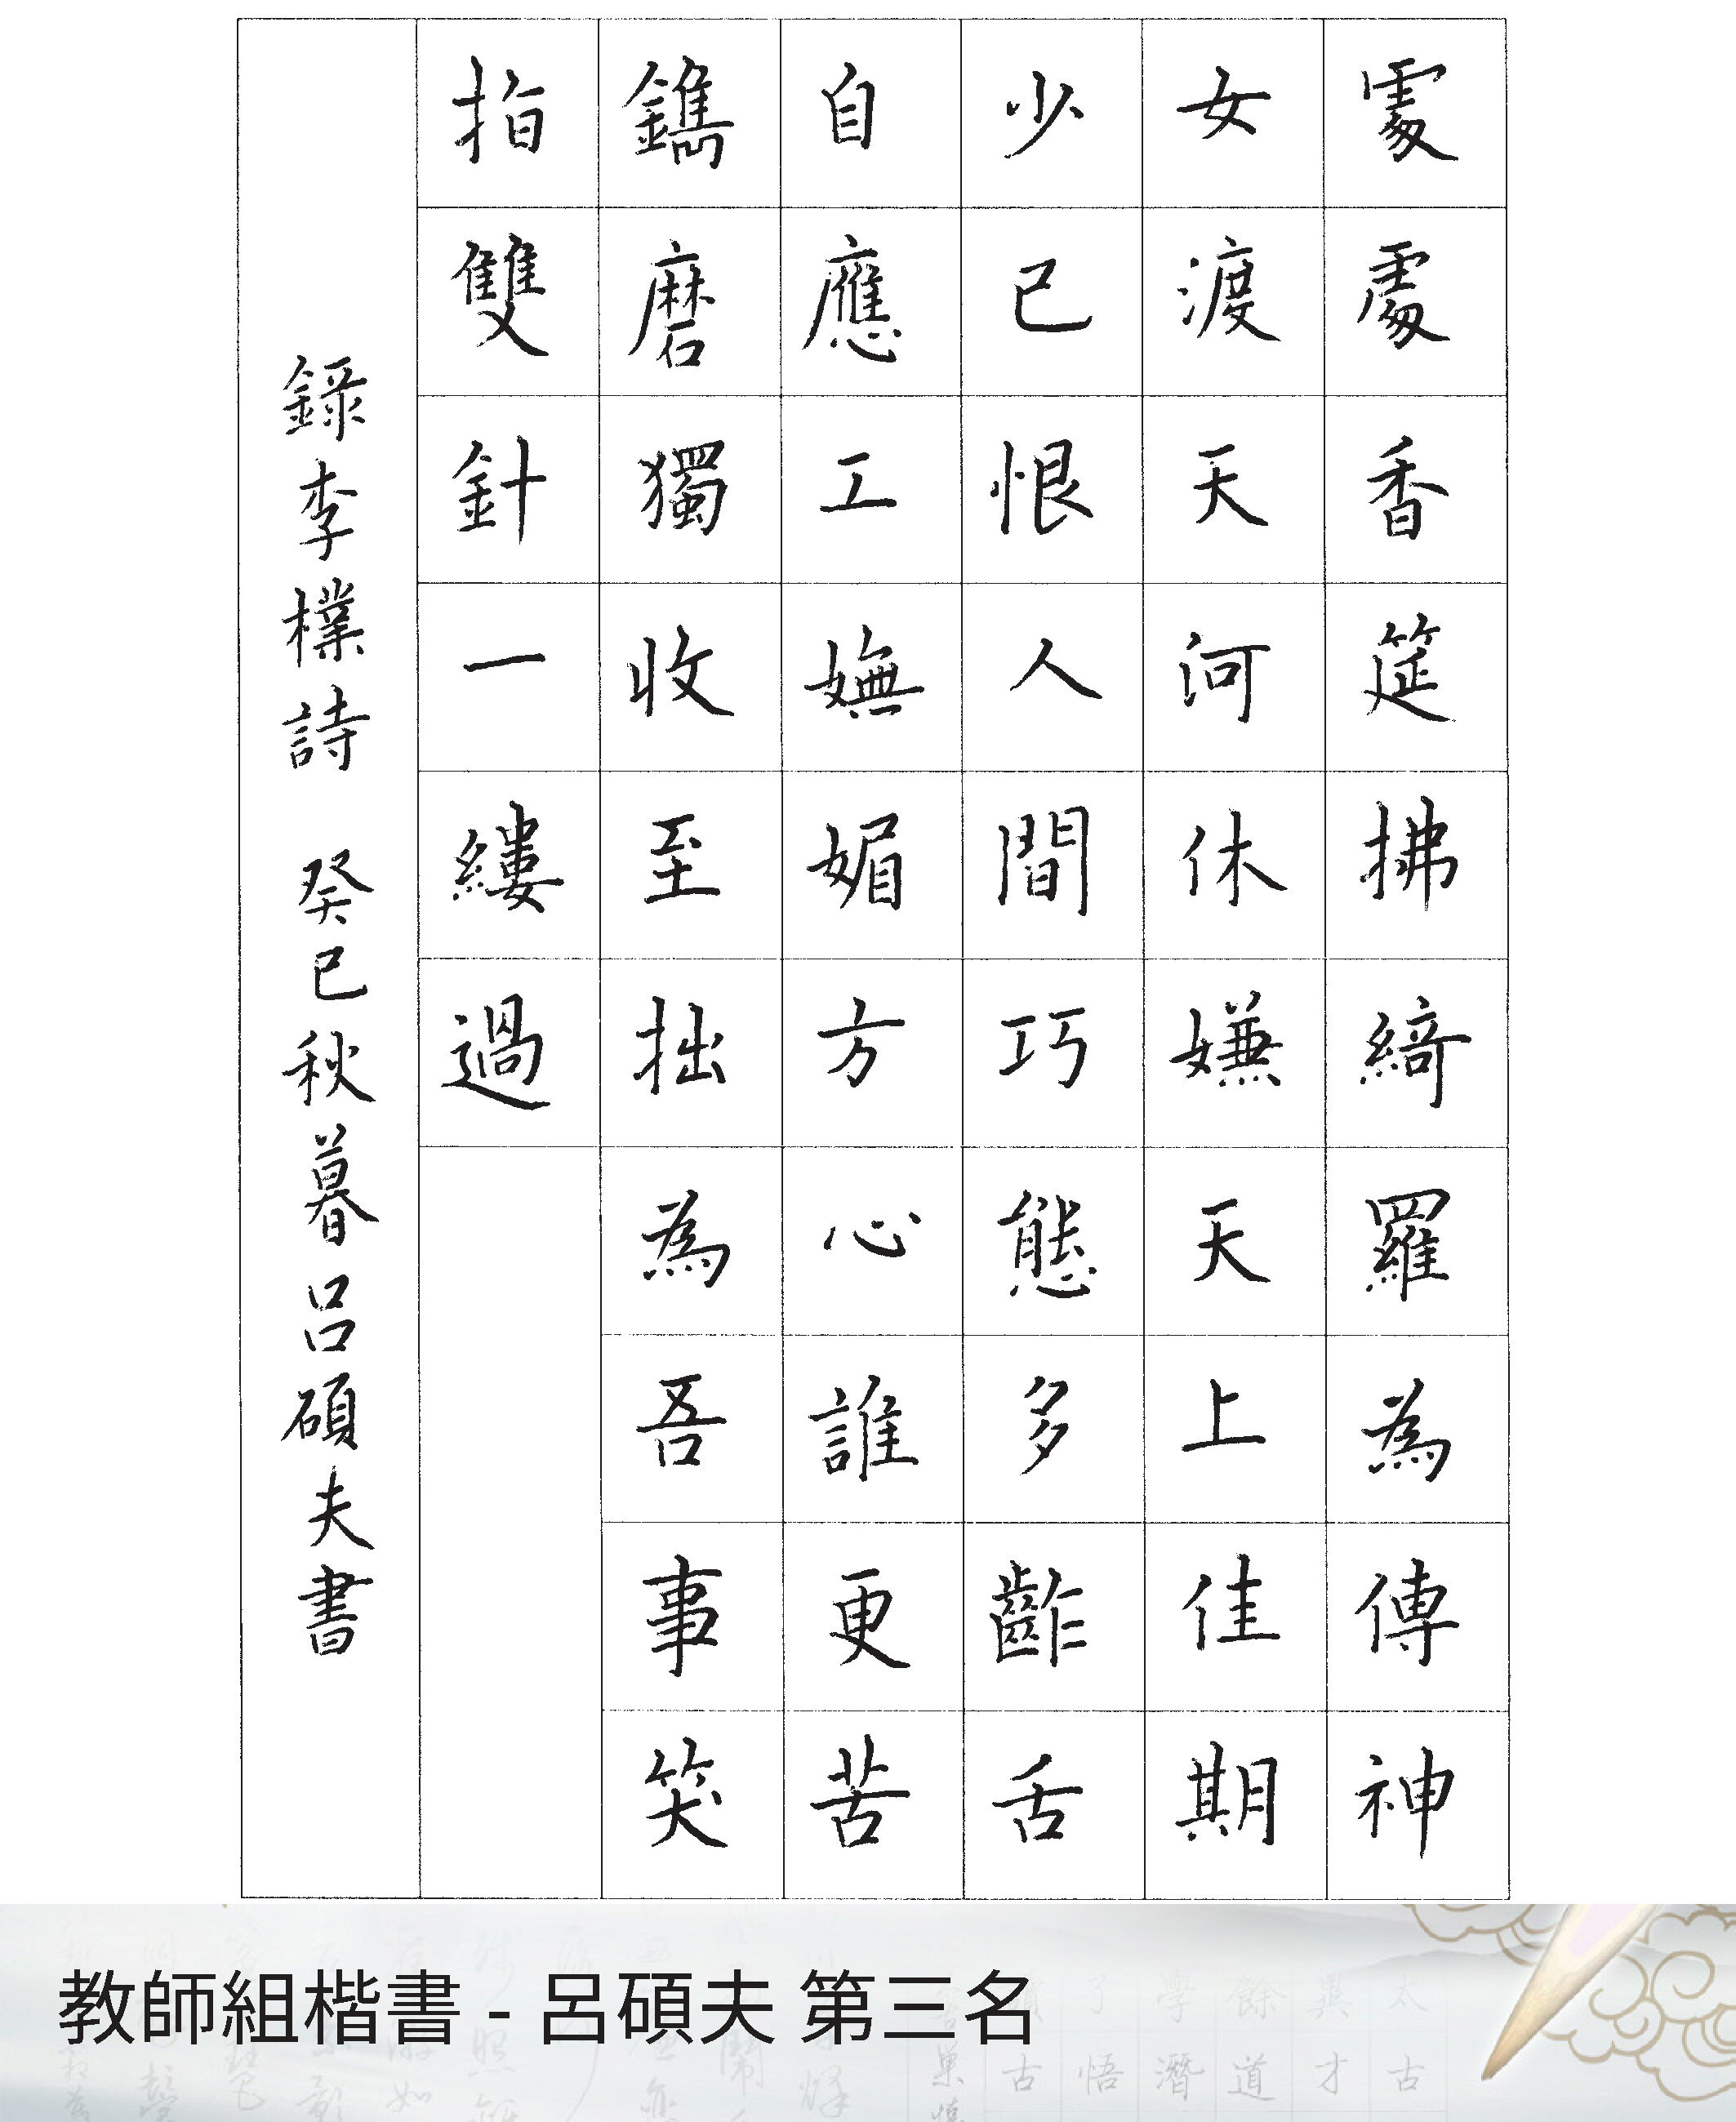 處處香筵拂綺羅為傳神
女渡天河休嫌天上佳期
少已恨人間巧態多齚舌
自應工嫵媚方心誰更苦
鐫磨獨收至拙為吾事笑
指雙針一縷過
錄李樸詩 癸巳秋暮呂碩夫書
教師組楷書 - 呂碩夫 第三名